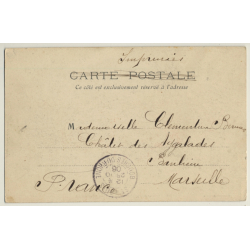 Imprimés
CARTE POSTALE
Ce côté est exclusivement réservé à l'adresse
Mademoiselle Clémentine
Châlet des Aygalades
Marseille
France